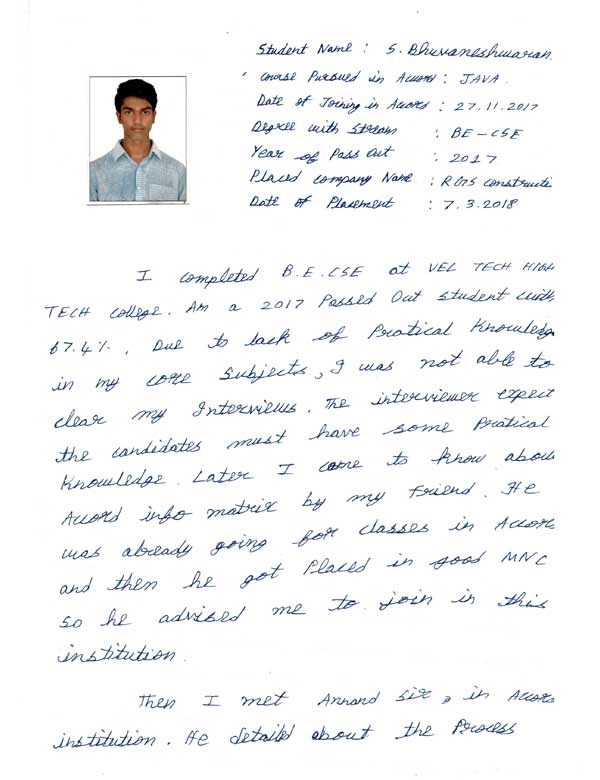 Student Name : S. Bhuvaneshwaran
Course Pursued in Accord : JAVA
Date of Joining in Accord : 27.11.2017
Degree with Stream : BE-CSE
Year of Pass Out : 2017
Placed Company Name : constructi
Date of Placement : 7.3.2018
I completed B.E.CSE at VEL TECH HIGH
TECH college. Am a 2017 Passed Out student with
67.4%. Due to lack of Pratical Knowledge
in my core subjects, I was not able to
clear my Interviews. The interviewer expect
the candidates must have some Pratical
Knowledge. Later I came to know about
Accord info matrix by my friend. He
was already going for classes in Accord
and then he got Placed in good MNC
so he advised me to join in this
institution.
Then I met Annand sir, in Accord
institution. He detailed about the Process